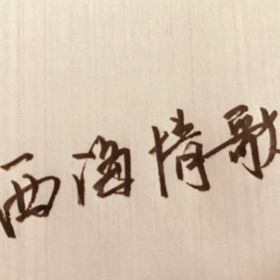 西海情歌